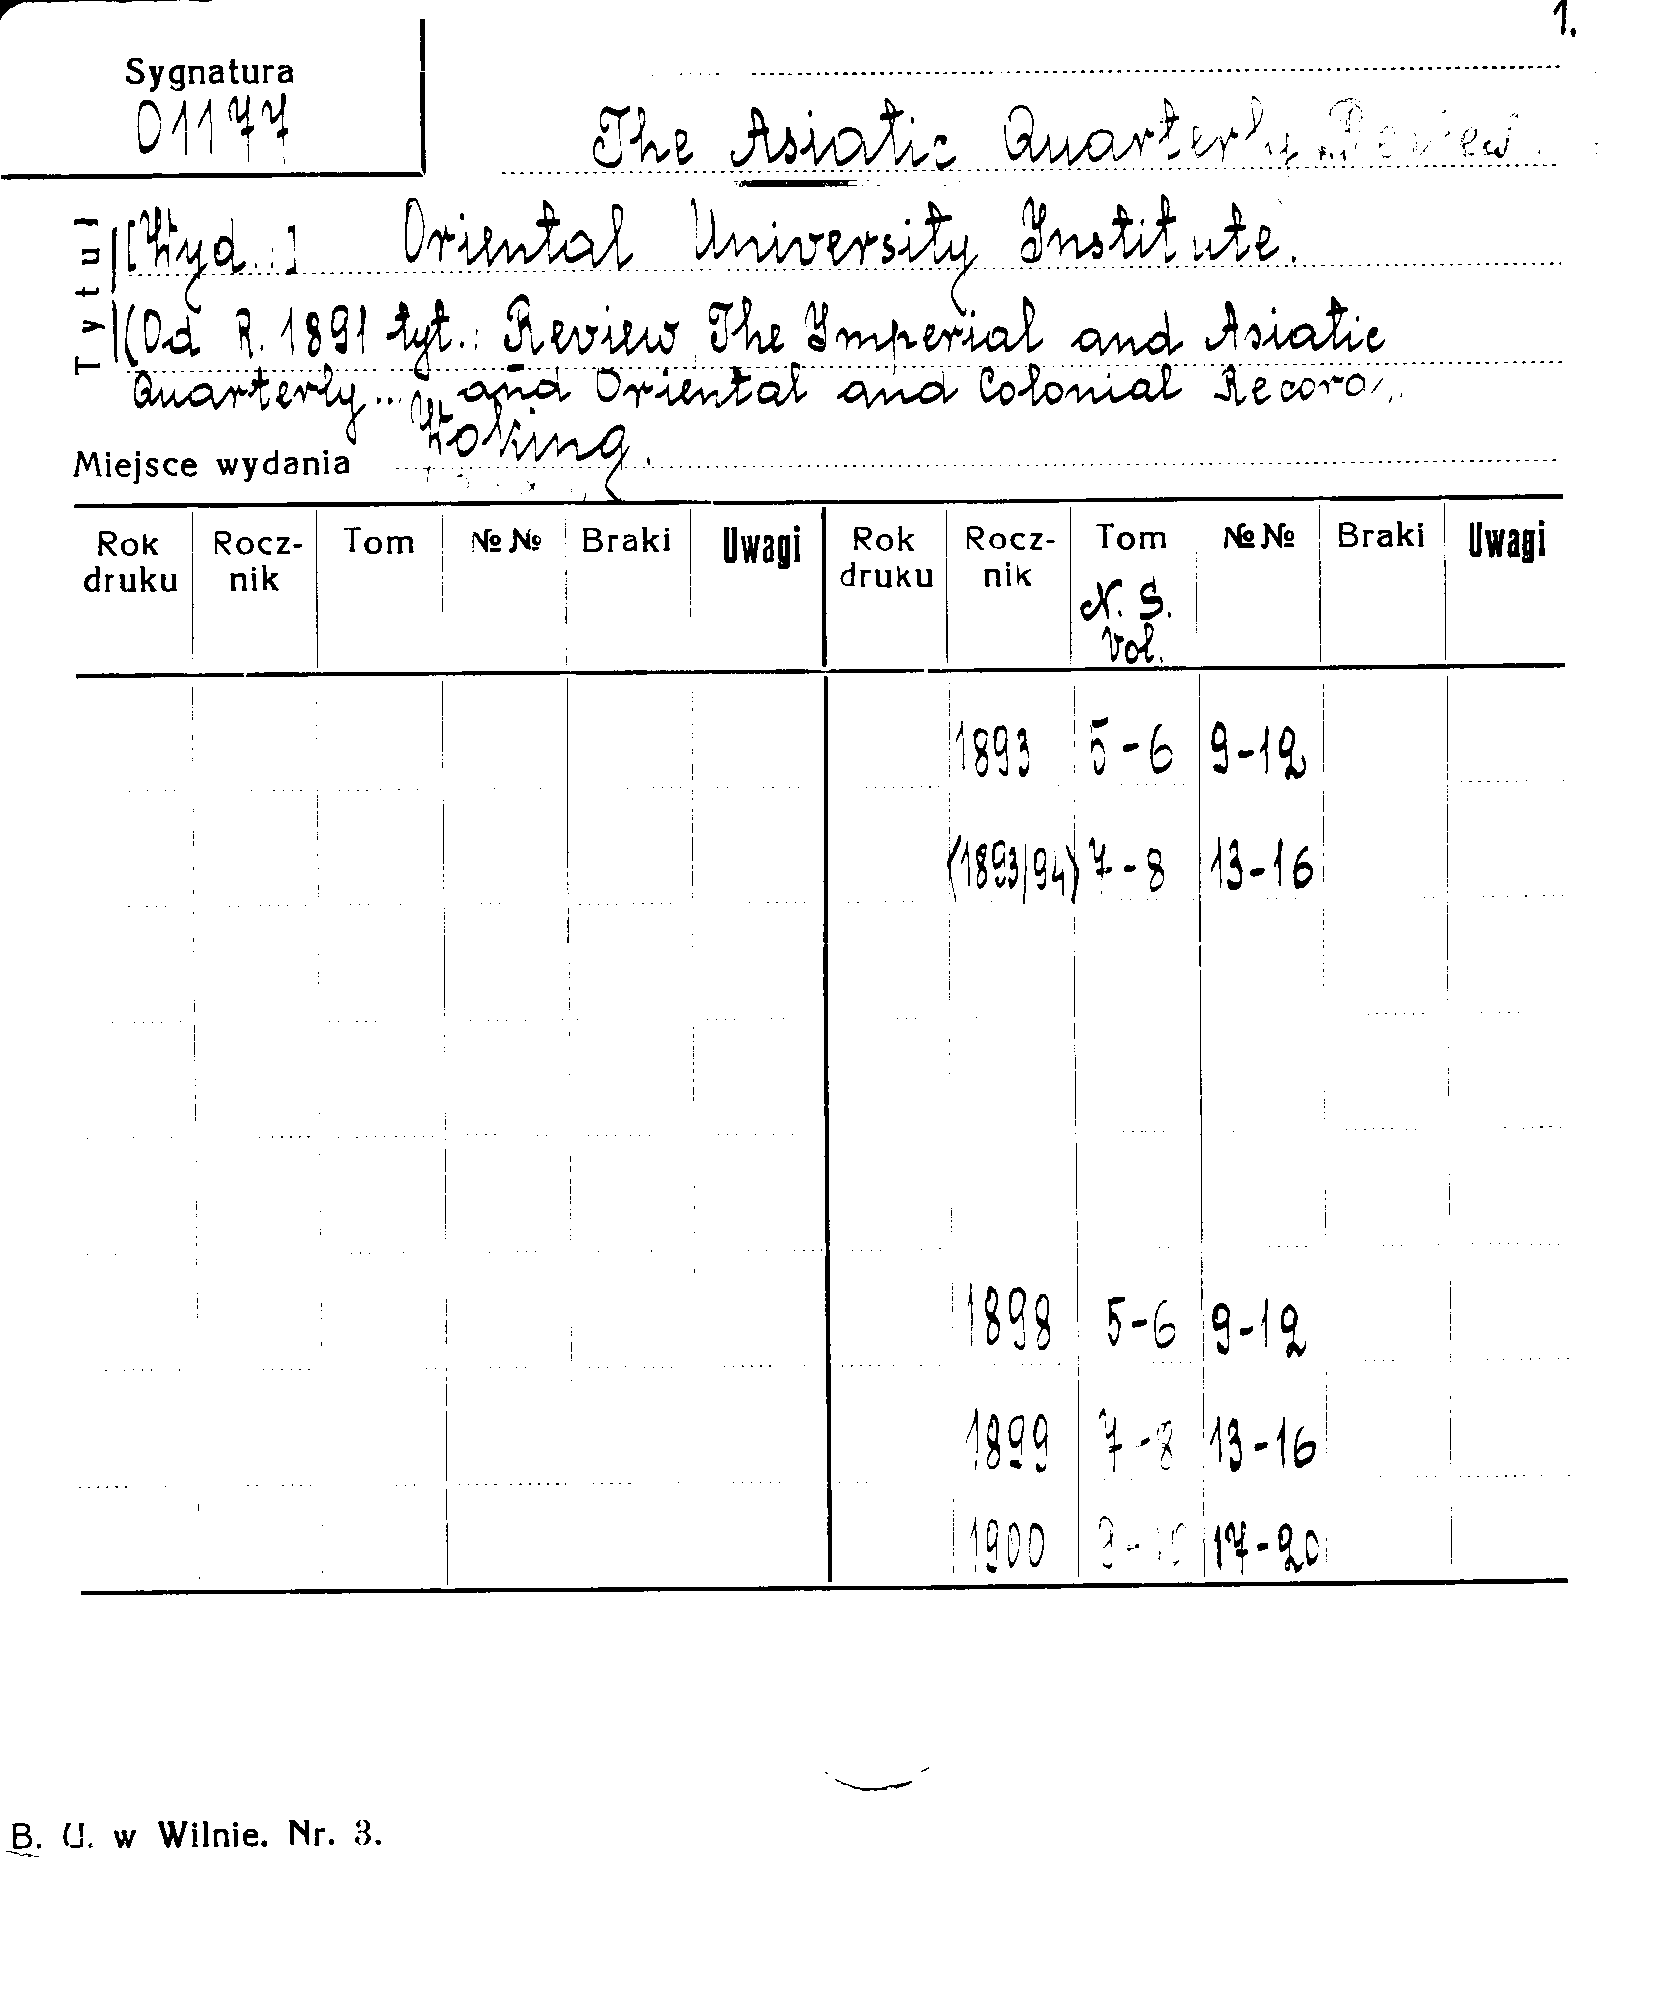 1.
Sygnatura
01177
The Asiatic Quarterly Review.
Tytuł
[Wyd.:] Oriental University Institute.
(Od R. 1891 tyt.: Review, The Imperial and Asiatic
Quarterly... and Oriental and Colonial Record.
Miejsce wydania Woking.
Rok druku Rocz-nik Tom №№ Braki Uwagi Rok druku Rocz-nik Tom №№ Braki Uwagi
N. S.
Vol.
1893 5-6 9-12
(1893/94) 7-8 13-16
1898 5-6 9-12
1899 7-8 13-16
1900 9-10 17-20
B. U. w Wilnie. Nr. 3.